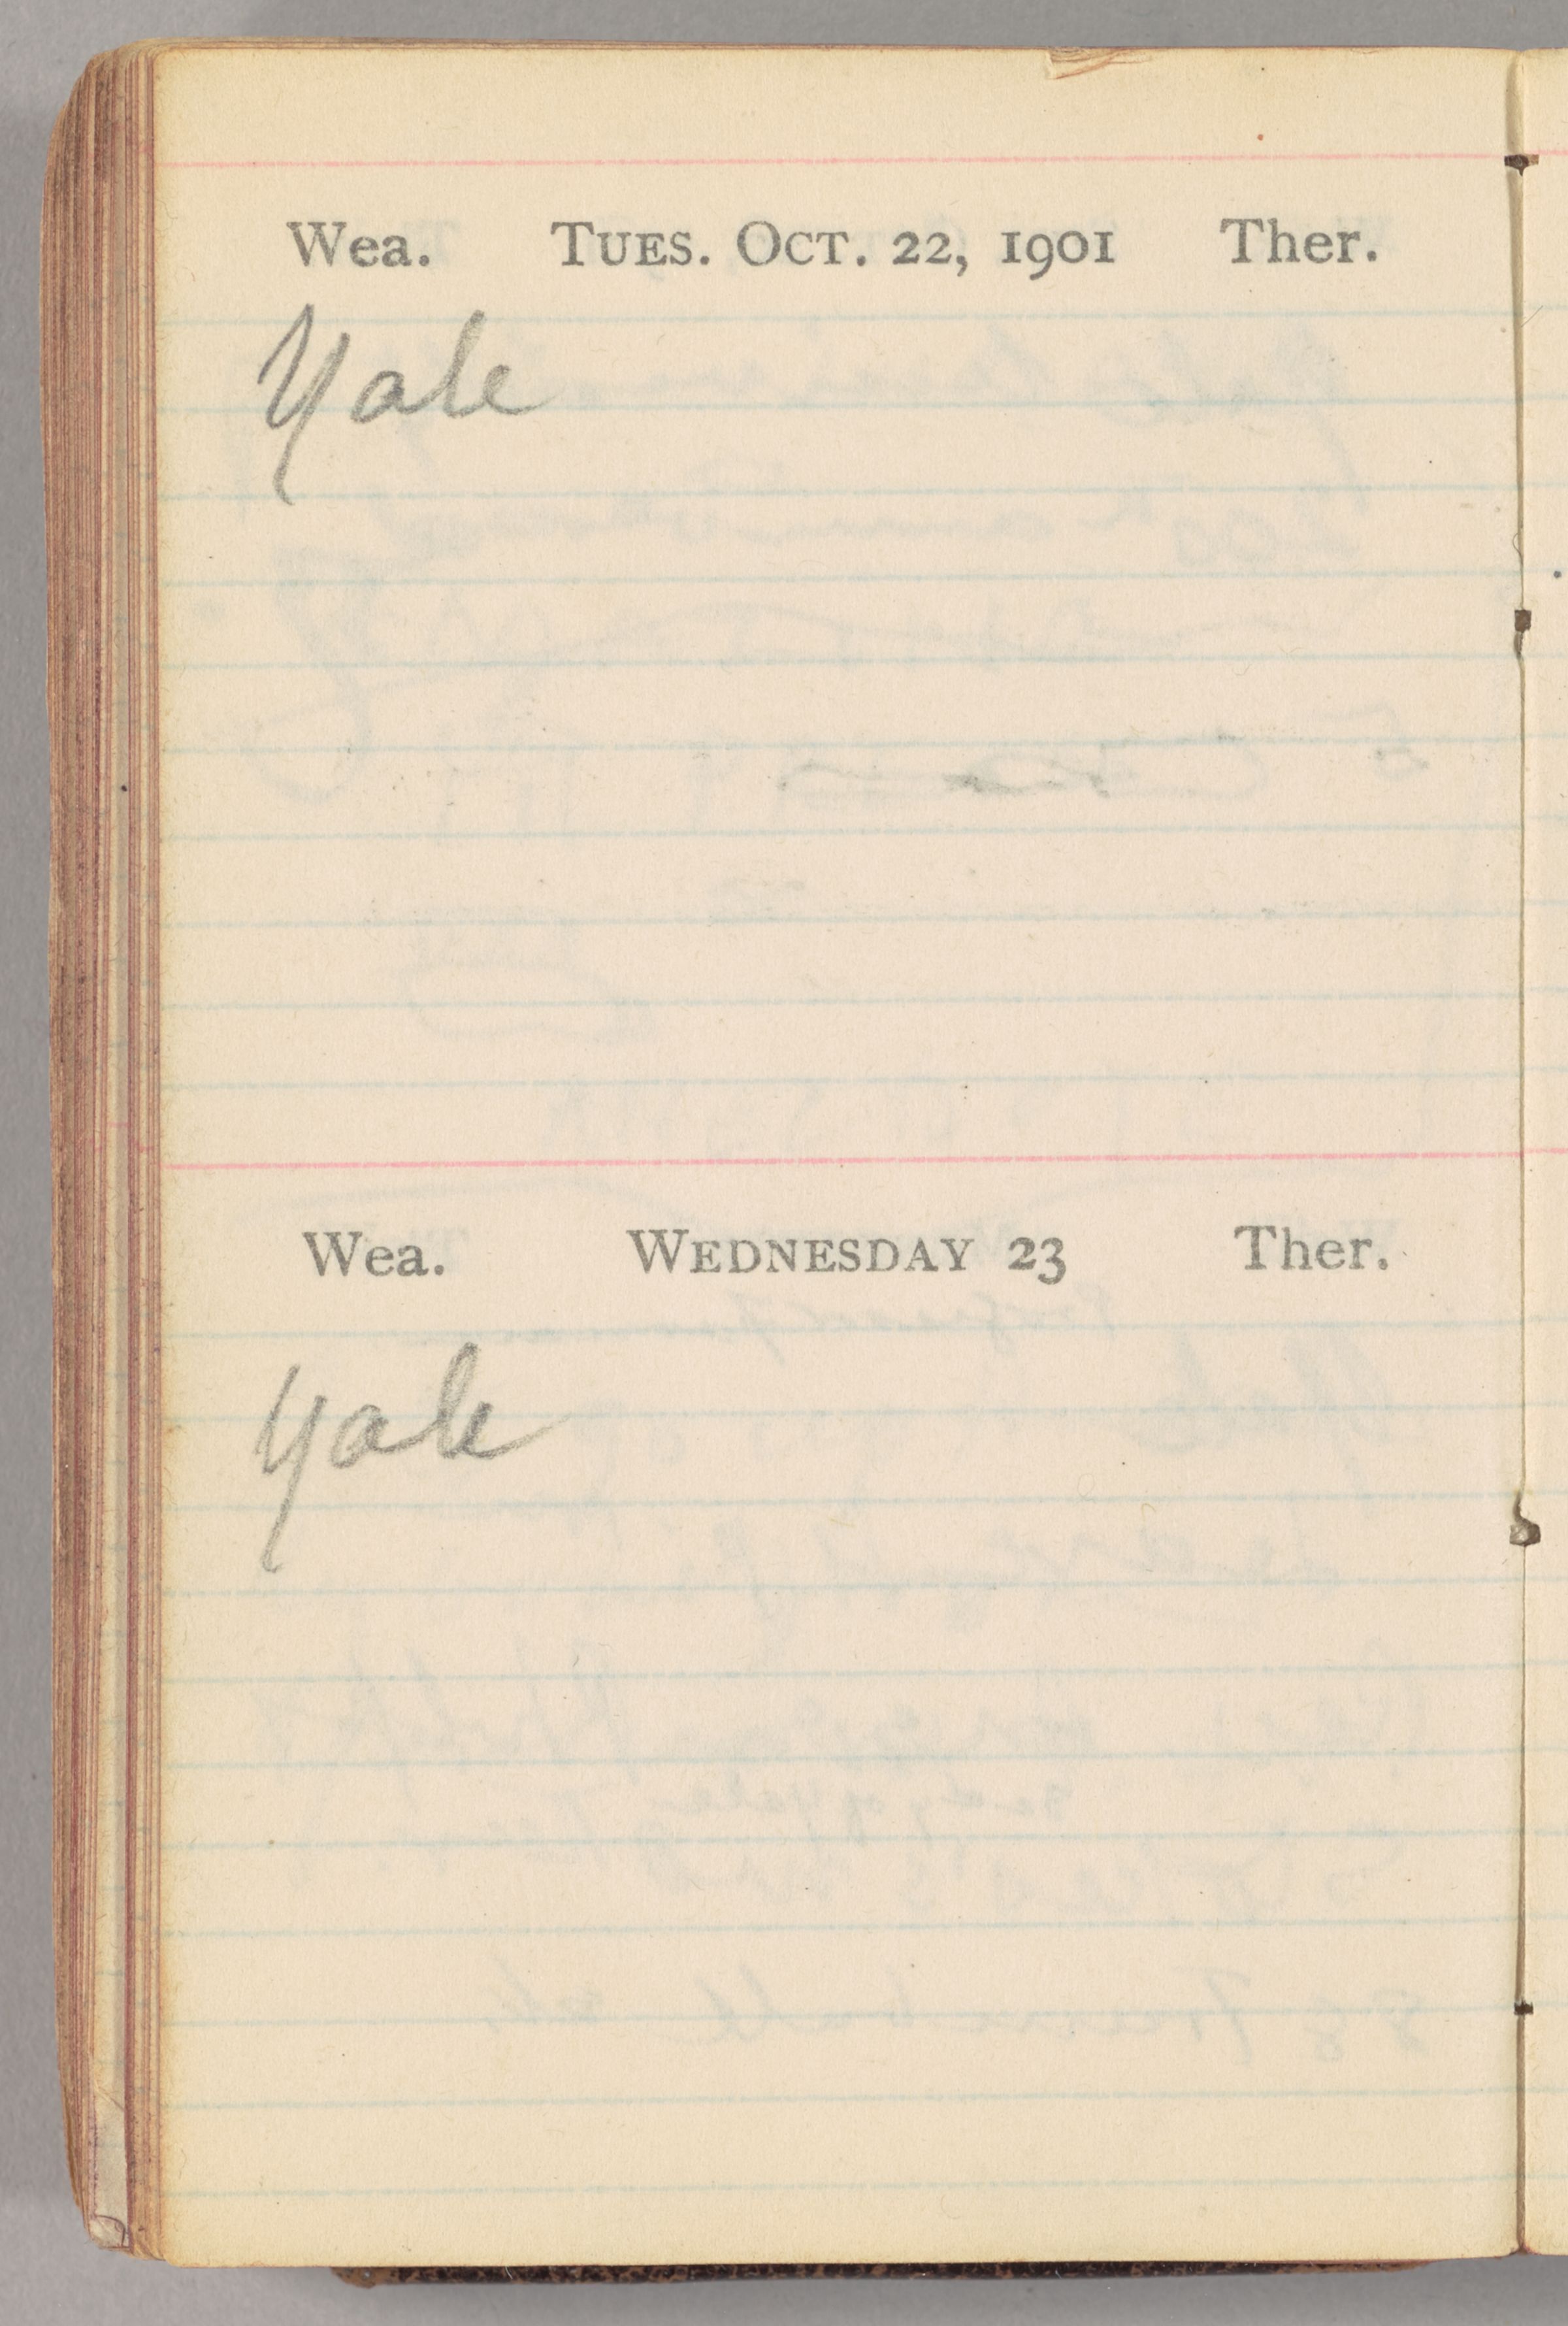 Wea. TUES. OCT. 22, 1901 Ther.
Yale
Wea. WEDNESDAY 23 Ther.
Yale